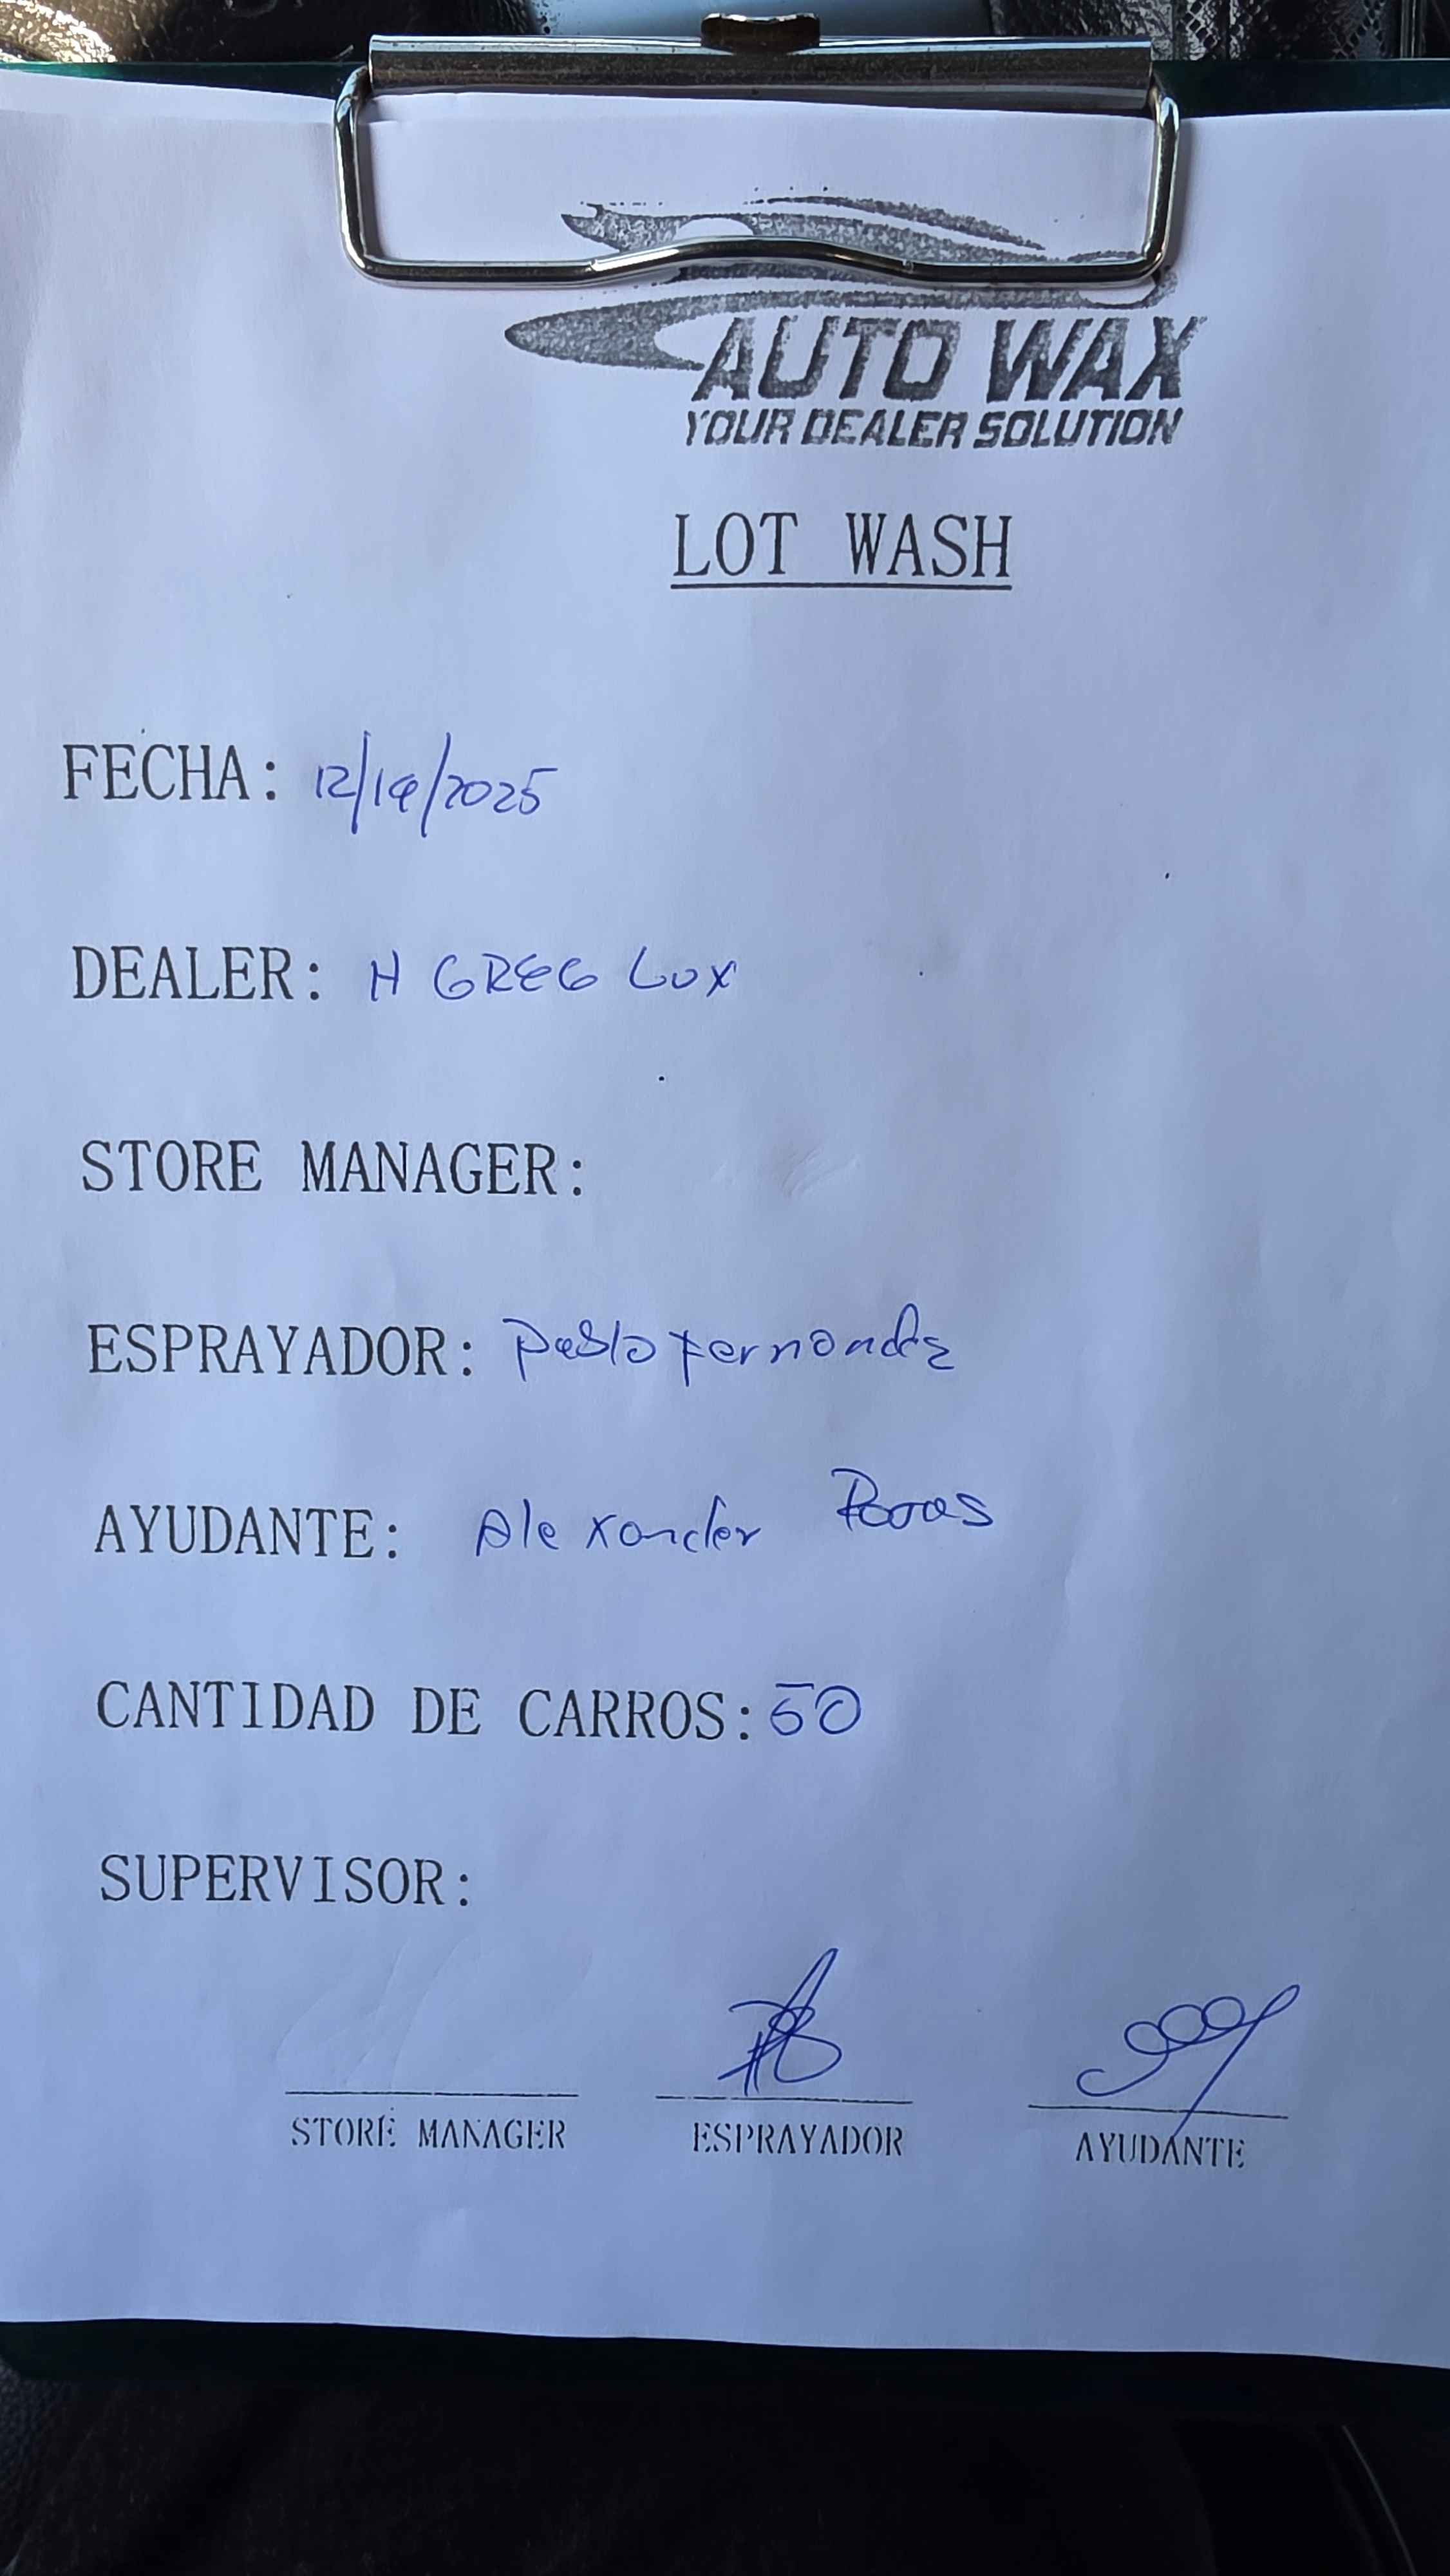 AUTO WAX
YOUR DEALER SOLUTION
LOT WASH
FECHA: 12/19/2025
DEALER: H GREG LUX
STORE MANAGER:
ESPRAYADOR: Pablo Fernandz
AYUDANTE: Alexander
CANTIDAD DE CARROS: 50
SUPERVISOR:
STORE MANAGER ESPRAYADOR AYUDANTE